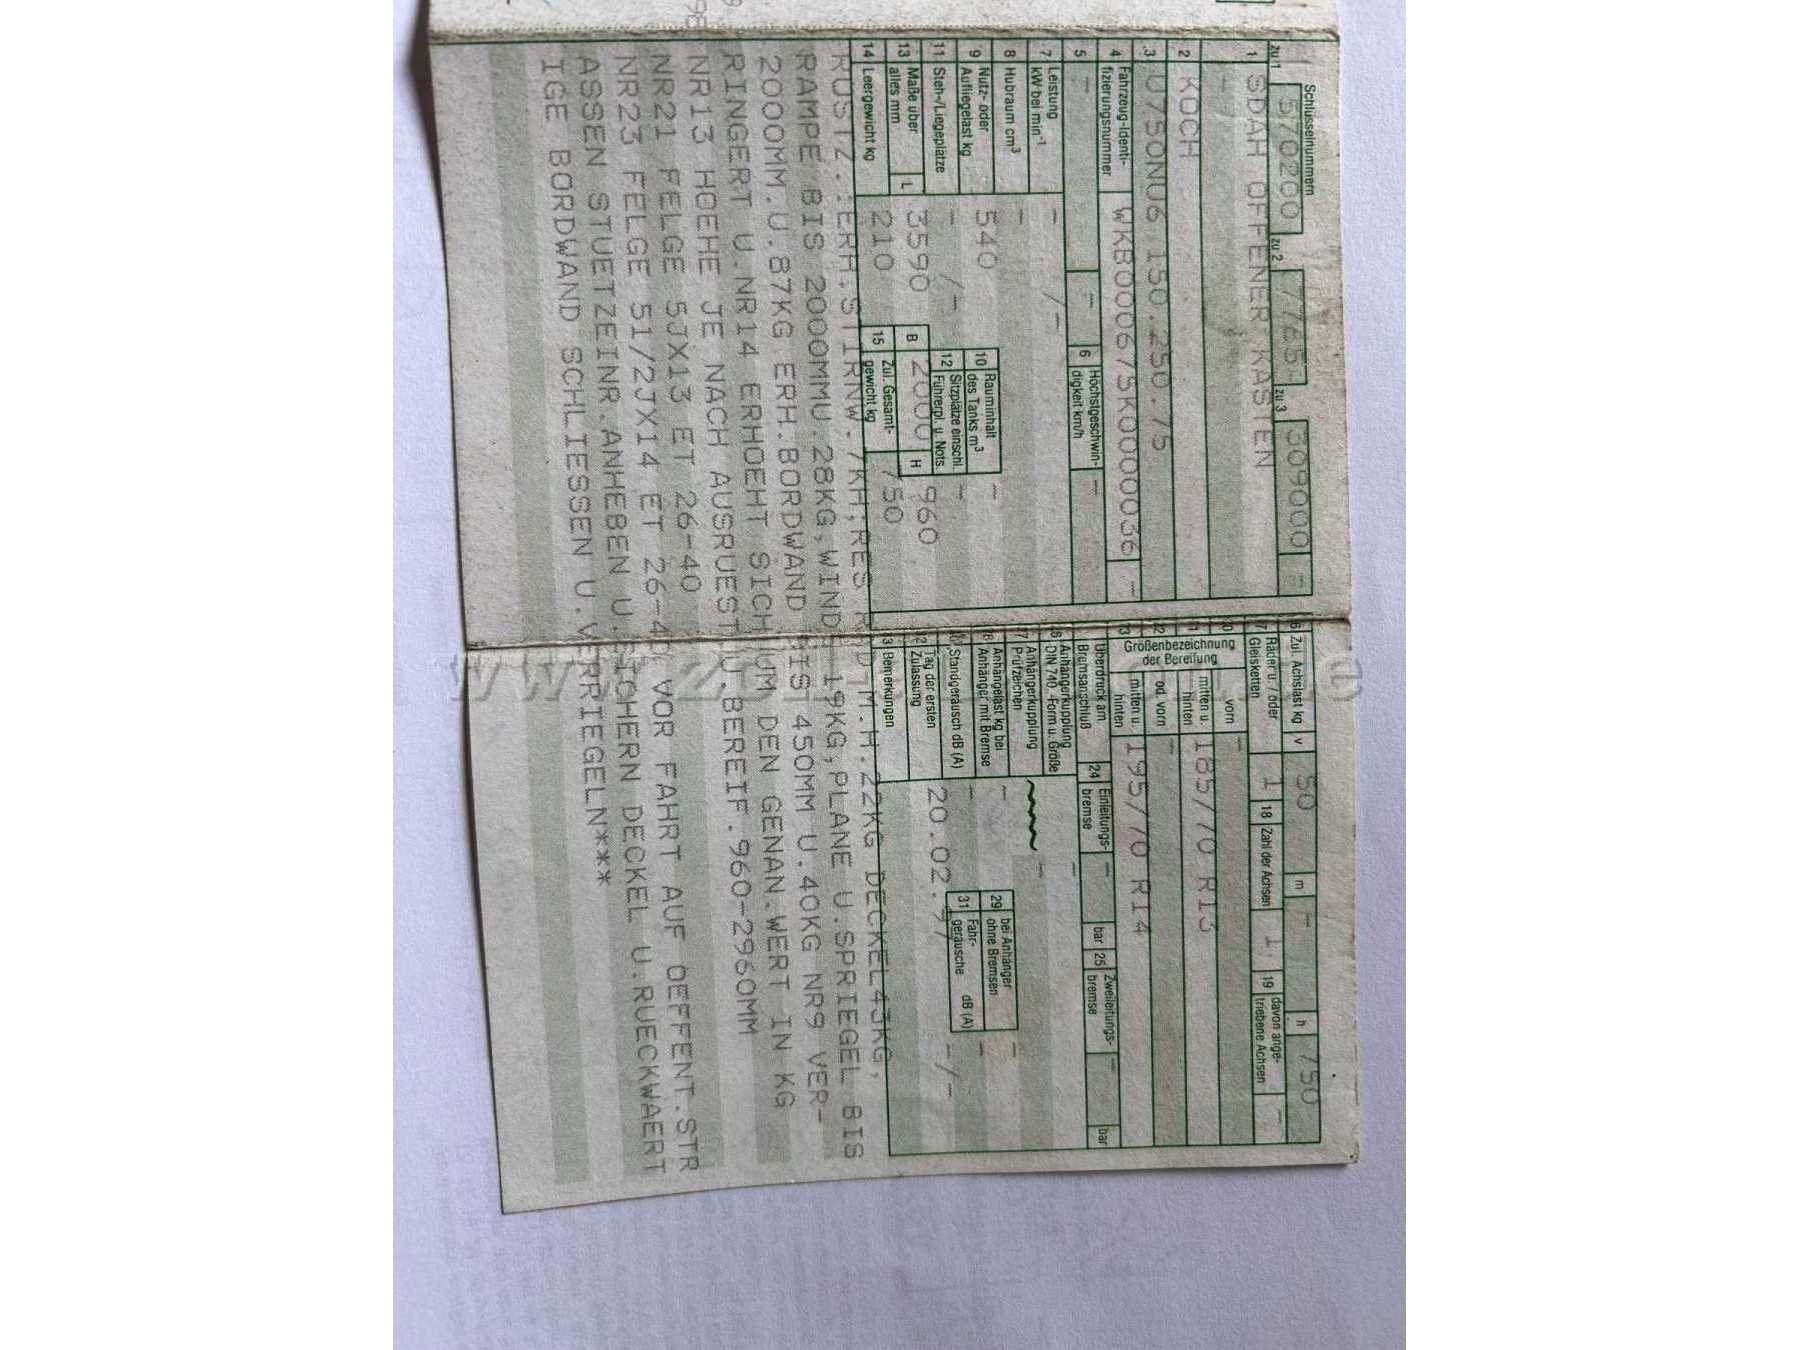 Schlüsselnummern
zu 1 570200 zu 2 7785 zu 3 309000 -
1 SDAH OFFENER KASTEN
-
2 KOCH
3 U750NU6 150.250.75
4 Fahrzeug-Identi-
fizierungsnummer WKB0000675K0000036 -
5 - - 6 Höchstgeschwin-
digkeit km/h -
7 Leistung
kW bei min⁻¹ - /-
8 Hubraum cm³ -
9 Nutz- oder
Aufliegelast kg 540 10 Rauminhalt
des Tanks m³ -
11 Steh-/Liegeplätze - /- 12 Sitzplätze einschl.
Führerpl. u. Nots. -
13 Maße über
alles mm L 3590 B 2000 H 960
14 Leergewicht kg 210 15 Zul. Gesamt-
gewicht kg 750
16 Zul. Achslast kg v 50 m - h 750
17 Räder u. / oder
Gleisketten 1 18 Zahl der Achsen 1 19 davon ange-
triebene Achsen -
20 Größenbezeichnung
der Bereifung
vorn -
21 mitten u.
hinten 185/70 R13
22 od. vorn -
23 mitten u.
hinten 195/70 R14
Überdruck am
Bremsanschluß 24 Einleitungs-
bremse - bar 25 Zweileitungs-
bremse - bar
26 Anhängerkupplung
DIN 740.-Form u. Größe -
27 Anhängerkupplung
Prüfzeichen -
28 Anhängelast kg bei
Anhänger mit Bremse - 29 bei Anhänger
ohne Bremsen -
30 Standgeräusch dB (A) - 31 Fahr-
geräusche dB (A) -
32 Tag der ersten
Zulassung 20.02.97 -/-
33 Bemerkungen
RUSTZ.:ERH.STIRNW.7KH;RES RAD M.H.22KG DECKEL43KG,
RAMPE BIS 2000MMU.28KG,WIND 19KG,PLANE U.SPRIEGEL BIS
2000MM.U.87KG ERH.BORDWAND BIS 450MM U.40KG NR9 VER-
RINGERT U.NR14 ERHOEHT SICH UM DEN GENAN.WERT IN KG
NR13 HOEHE JE NACH AUSRUEST U.BEREIF.960-2960MM
NR21 FELGE 5JX13 ET 26-40
NR23 FELGE 51/2JX14 ET 26-40 VOR FAHRT AUF OEFFENT.STR
ASSEN STUETZEINR.ANHEBEN U.SICHERN DECKEL U.RUECKWAERT
IGE BORDWAND SCHLIESSEN U.VERRIEGELN***